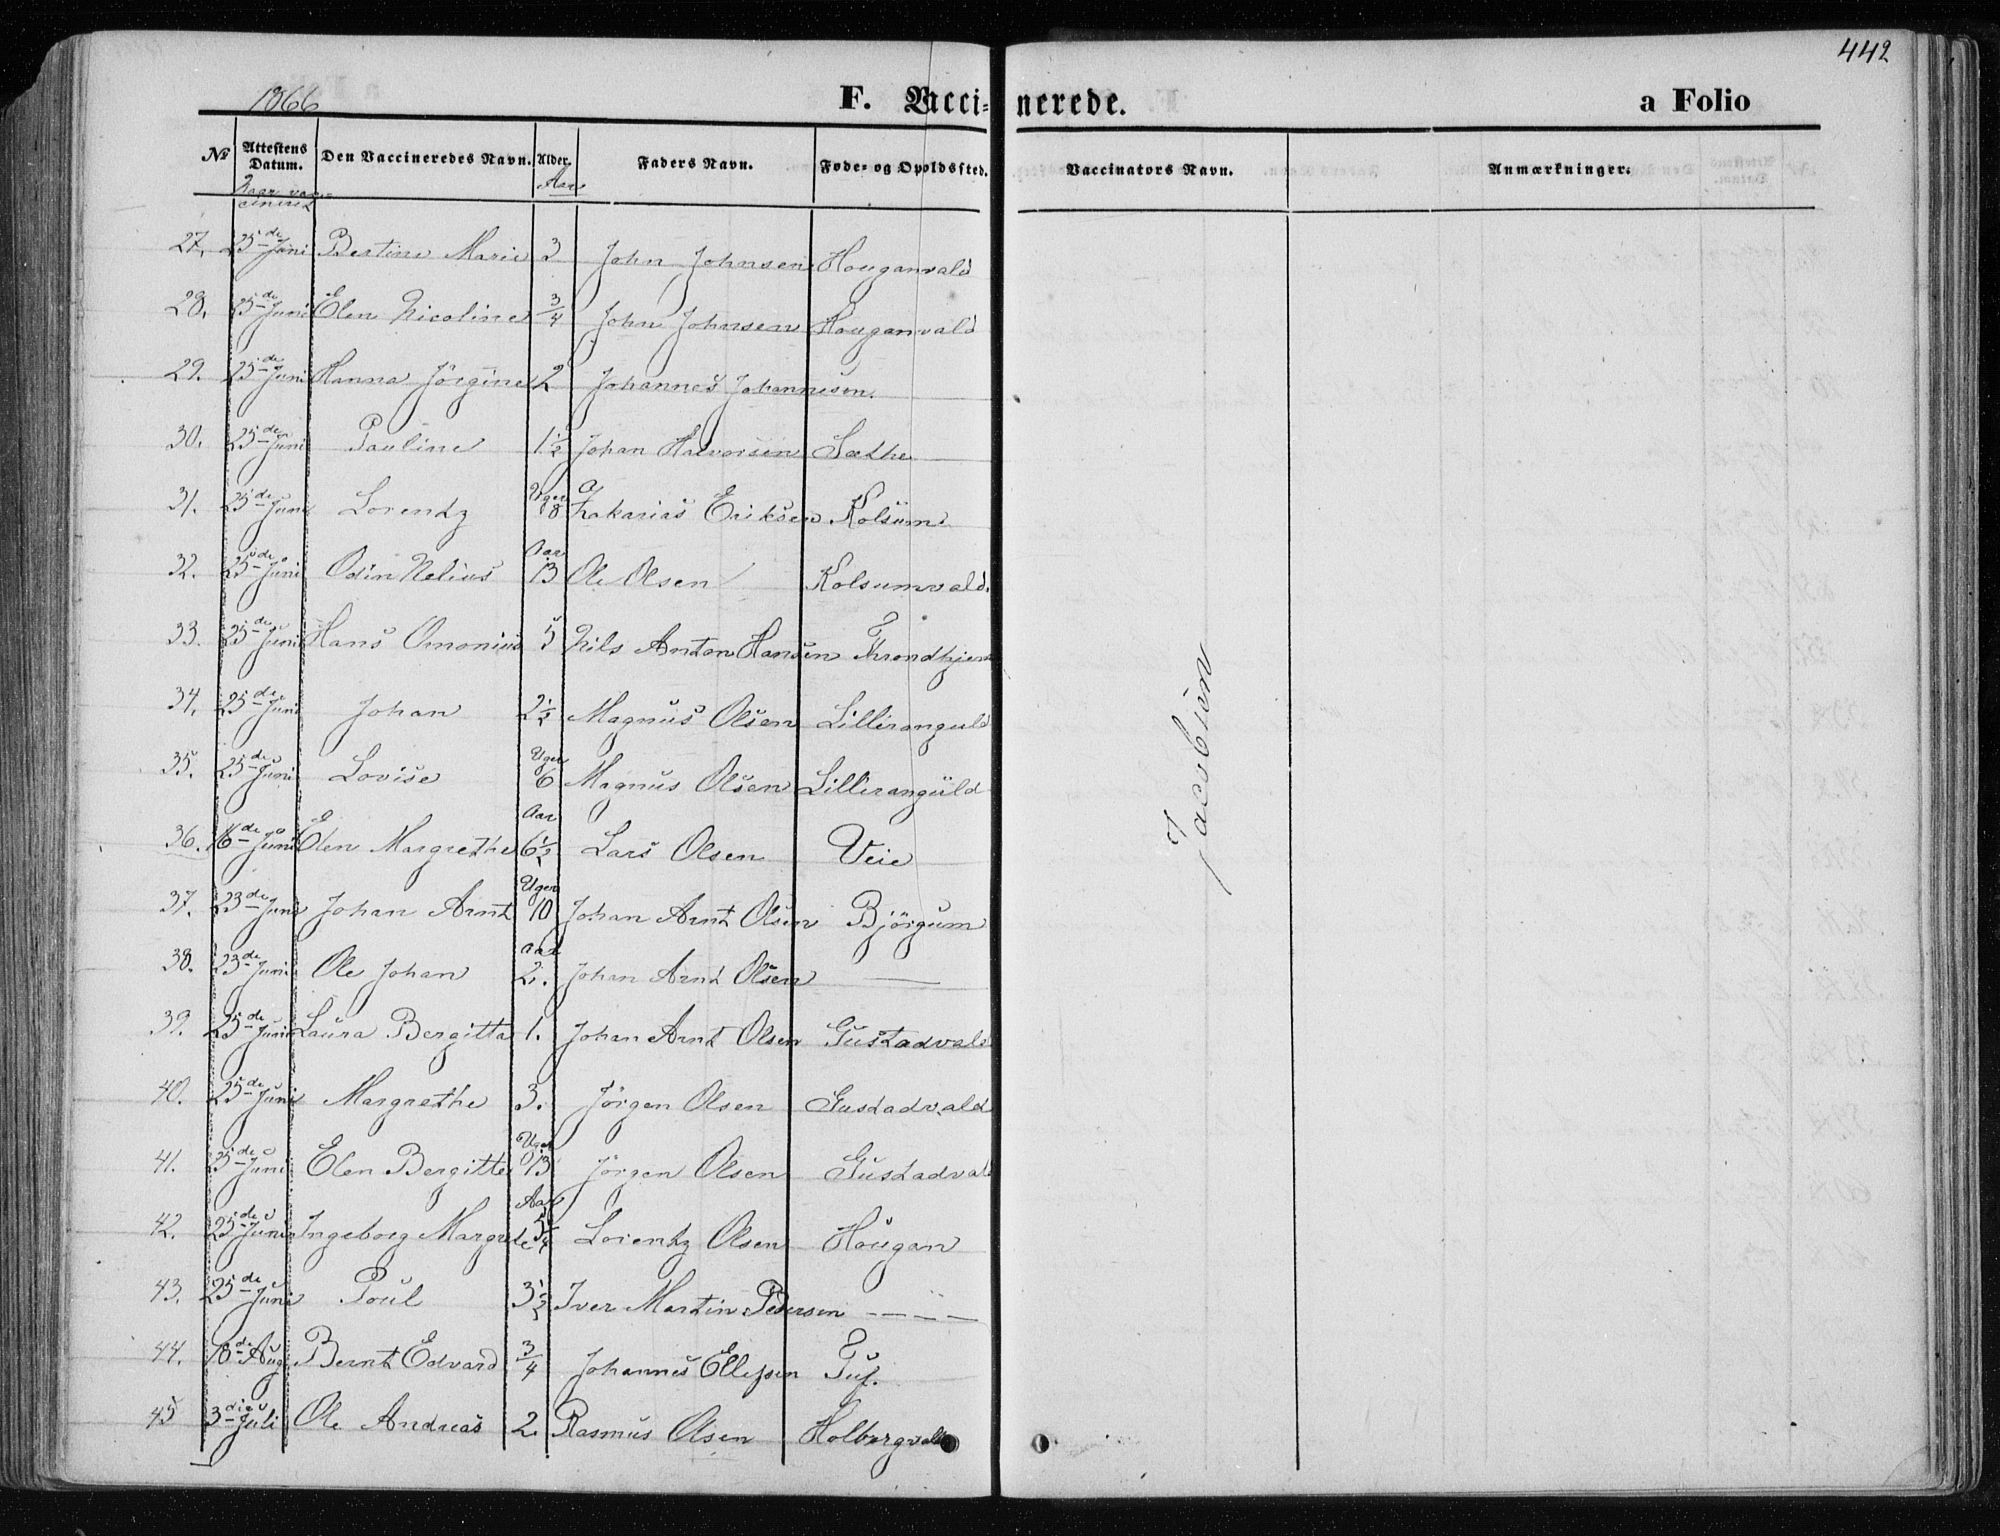 442
1866
F. Vaccinerede.
a Folio
No Attestens Datum. Den Vaccineredes Navn. Alder. Faders Navn. Føde- og Opoldssted. Vaccinators Navn. Anmærkninger.
Naar vaccineret Aar
27. 25de Juni Bertine Marie 3 John Johnsen Houganvald
28. 25de Juni Elen Nicoline 3/4 John Johnsen Houganvald
29. 25de Juni Hanna Jörgine 2 Johannes Johannesen.
30. 25de Juni Pauline 1 1/2 Johan Halvorsen Sæthe
31. 25de Juni Lorentz Uger 18 Zakarias Eriksen Kolsum
32. 25de Juni Odin Nelius Aar 13 Ole Olsen Kolsumvald.
33. 25de Juni Hans Omonius 5 Nils Anton Hansen Throndhjem
34. 25de Juni Johan 2 1/2 Magnus Olsen Lilleranguld
35. 25de Juni Lovise Uger 6 Magnus Olsen Lilleranguld
36. 16de Juni Elen Margrethe Aar 6 1/2 Lars Olsen Veie
37. 23de Juni Johan Arnt Uger 10 Johan Arnt Olsen Björgum
38. 23de Juni Ole Johan Aar 2. Johan Arnt Olsen —
39. 25de Juni Laura Bergitta 1. Johan Arnt Olsen Gustadvald
40. 25de Juni Margrethe 3. Jörgen Olsen Gustadvald
41. 25de Juni Elen Bergitte Uger 13 Jörgen Olsen Gustadvald
42. 25de Juni Ingeborg Margrete Aar 5/4 Lorentz Olsen Hougan
43. 25de Juni Poul 3 1/2 Iver Martin Pedersen — — — —
44. 18de Aug Bernt Edvard 3/4 Johannes Ellefsen Tuf.
45 3die Juli Ole Andreas 2. Rasmus Olsen Holbergvald
Jacobsen